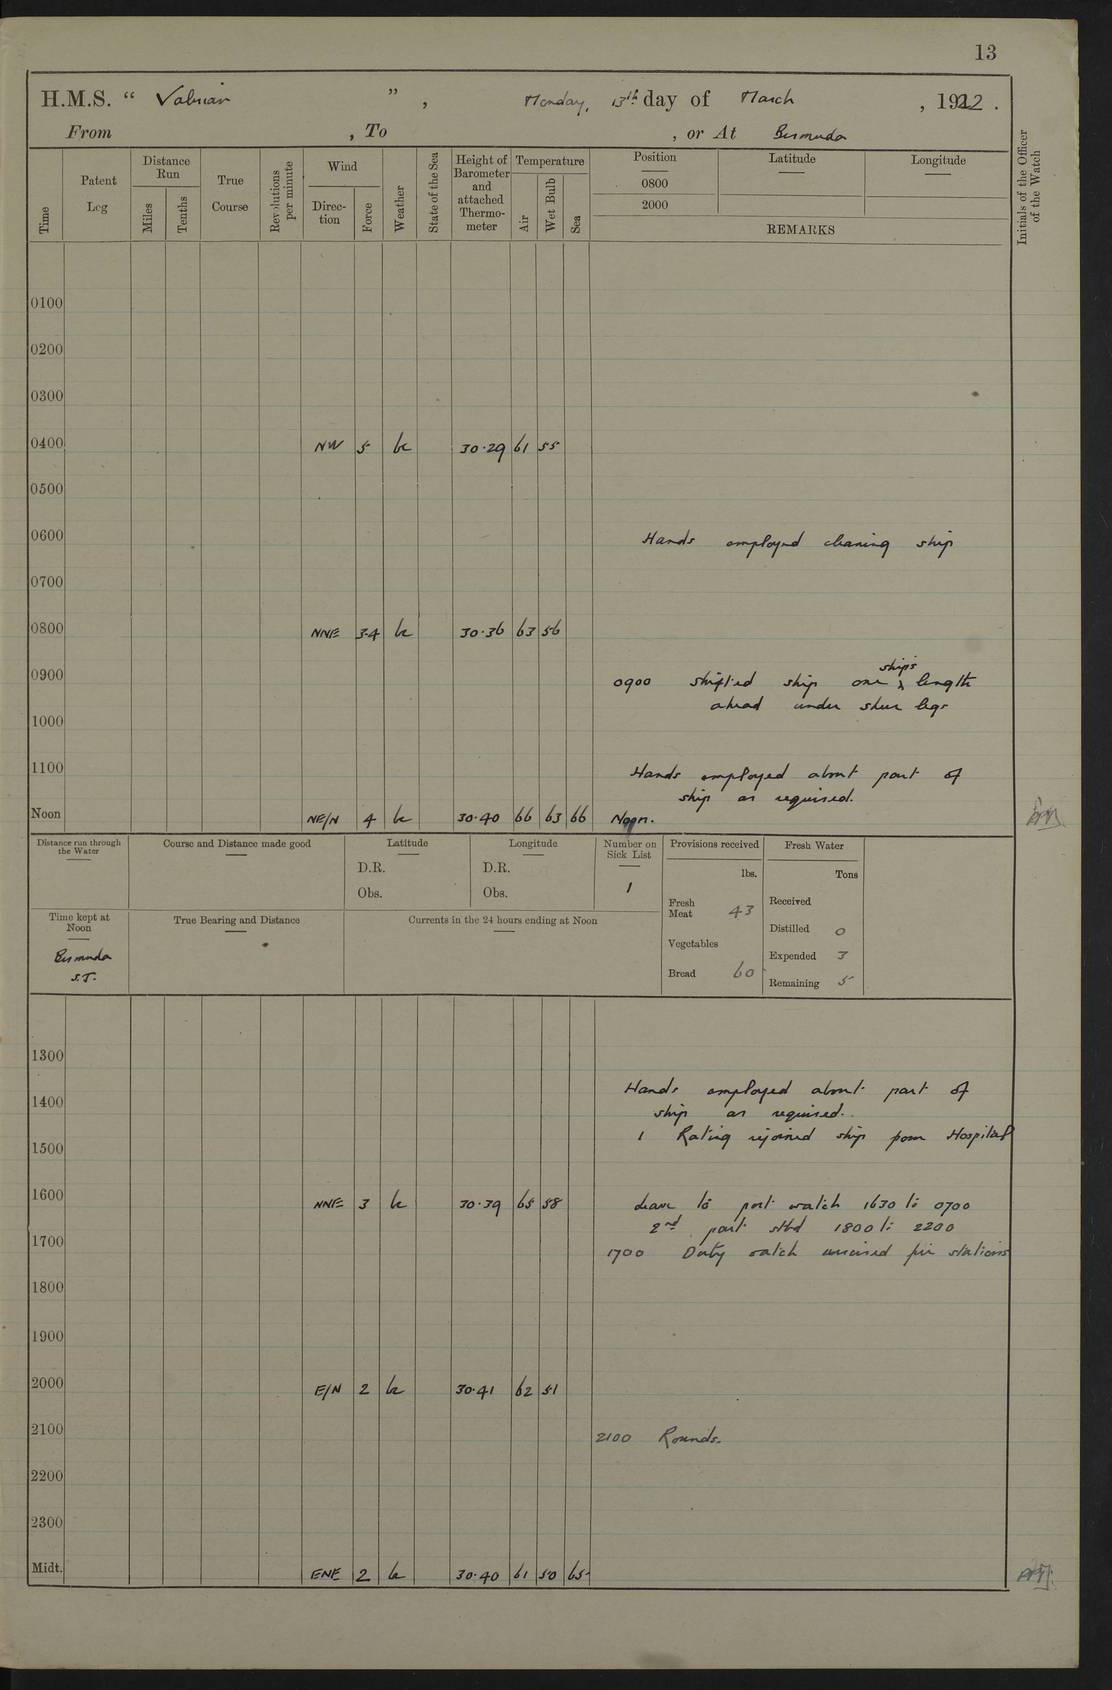 13
H.M.S. “ Valerian ” , Monday, 13th day of March , 1922 .
From , To , or At Bermuda
Time
Patent Log
Distance Run
Miles
Tenths
True Course
Revolutions per minute
Wind
Direction
Force
Weather
State of the Sea
Height of Barometer and attached Thermometer
Temperature
Air
Wet Bulb
Sea
Position
Latitude
Longitude
0800
2000
REMARKS
Initials of the Officer of the Watch
0100
0200
0300
0400 NW 5 bc 30·29 61 55
0500
0600 Hands employed cleaning ship
0700
0800 NNE 3-4 bc 30·36 63 56
0900 0900 shifted ship one ship's length
ahead under sheer legs
1000
1100 Hands employed about part of
ship as required.
Noon NE/N 4 bc 30·40 66 63 66 Noon.
Distance run through the Water
Course and Distance made good
Latitude
D.R.
Obs.
Longitude
D.R.
Obs.
Number on Sick List
1
Provisions received
lbs.
Fresh Meat 43
Vegetables
Bread 60
Fresh Water
Tons
Received
Distilled 0
Expended 3
Remaining 5
Time kept at Noon
Bermuda
S.T.
True Bearing and Distance
Currents in the 24 hours ending at Noon
1300
Hands employed about part of
1400
ship as required.
1 Rating rejoined ship from Hospital
1500
1600 NNE 3 bc 30·39 65 58 Leave to port watch 1630 to 0700
2nd part stbd 1800 to 2200
1700 1700 Duty watch exercised fire stations
1800
1900
2000 E/N 2 bc 30·41 62 51
2100 2100 Rounds.
2200
2300
Midt. ENE 2 bc 30·40 61 50 65